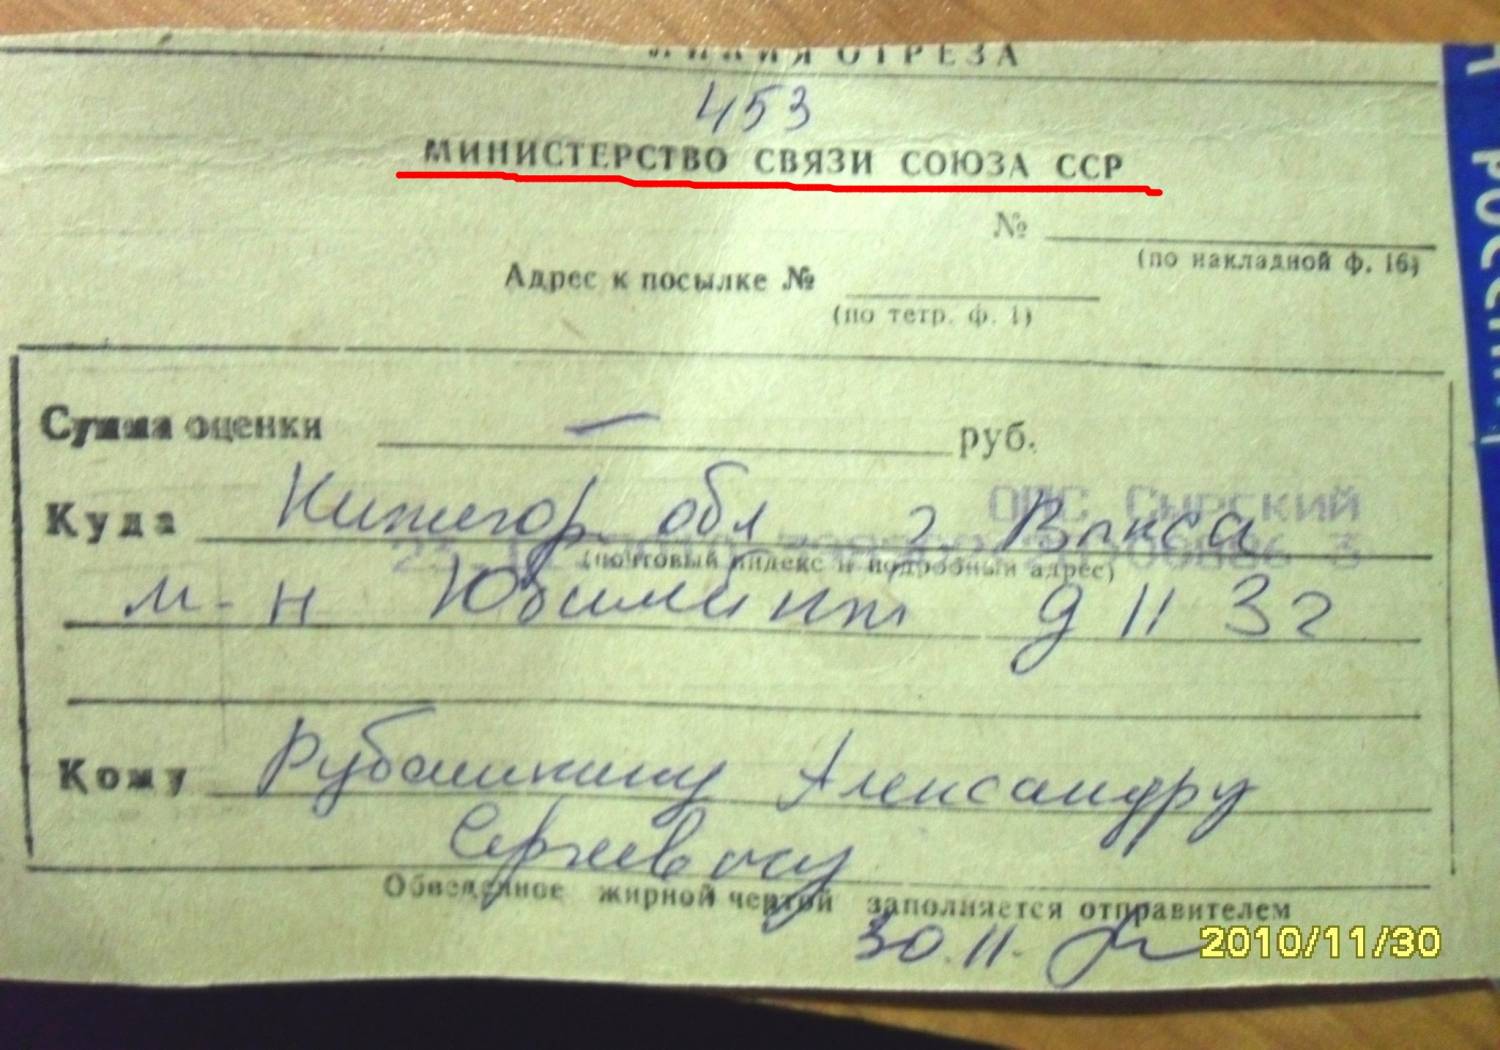 ЛИНИЯ ОТРЕЗА
453
МИНИСТЕРСТВО СВЯЗИ СОЮЗА ССР
№
(по накладной ф. 16)
Адрес к посылке №
(по тетр. ф. 1)
Сумма оценки — руб.
ОПС Сырский
Куда Нижегор. обл г Выкса
(почтовый индекс и подробный адрес)
м-н Юбилейный д 11 32
Кому Рубашкину Александру
Сергеевичу
Обведенное жирной чертой заполняется отправителем
30.11.
2010/11/30
РОССИИ